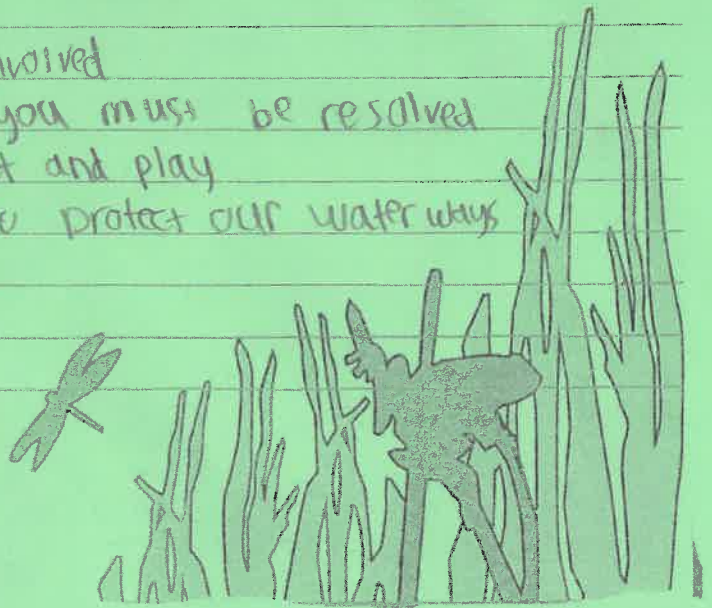 you must be resolved
and play
protect our waterways